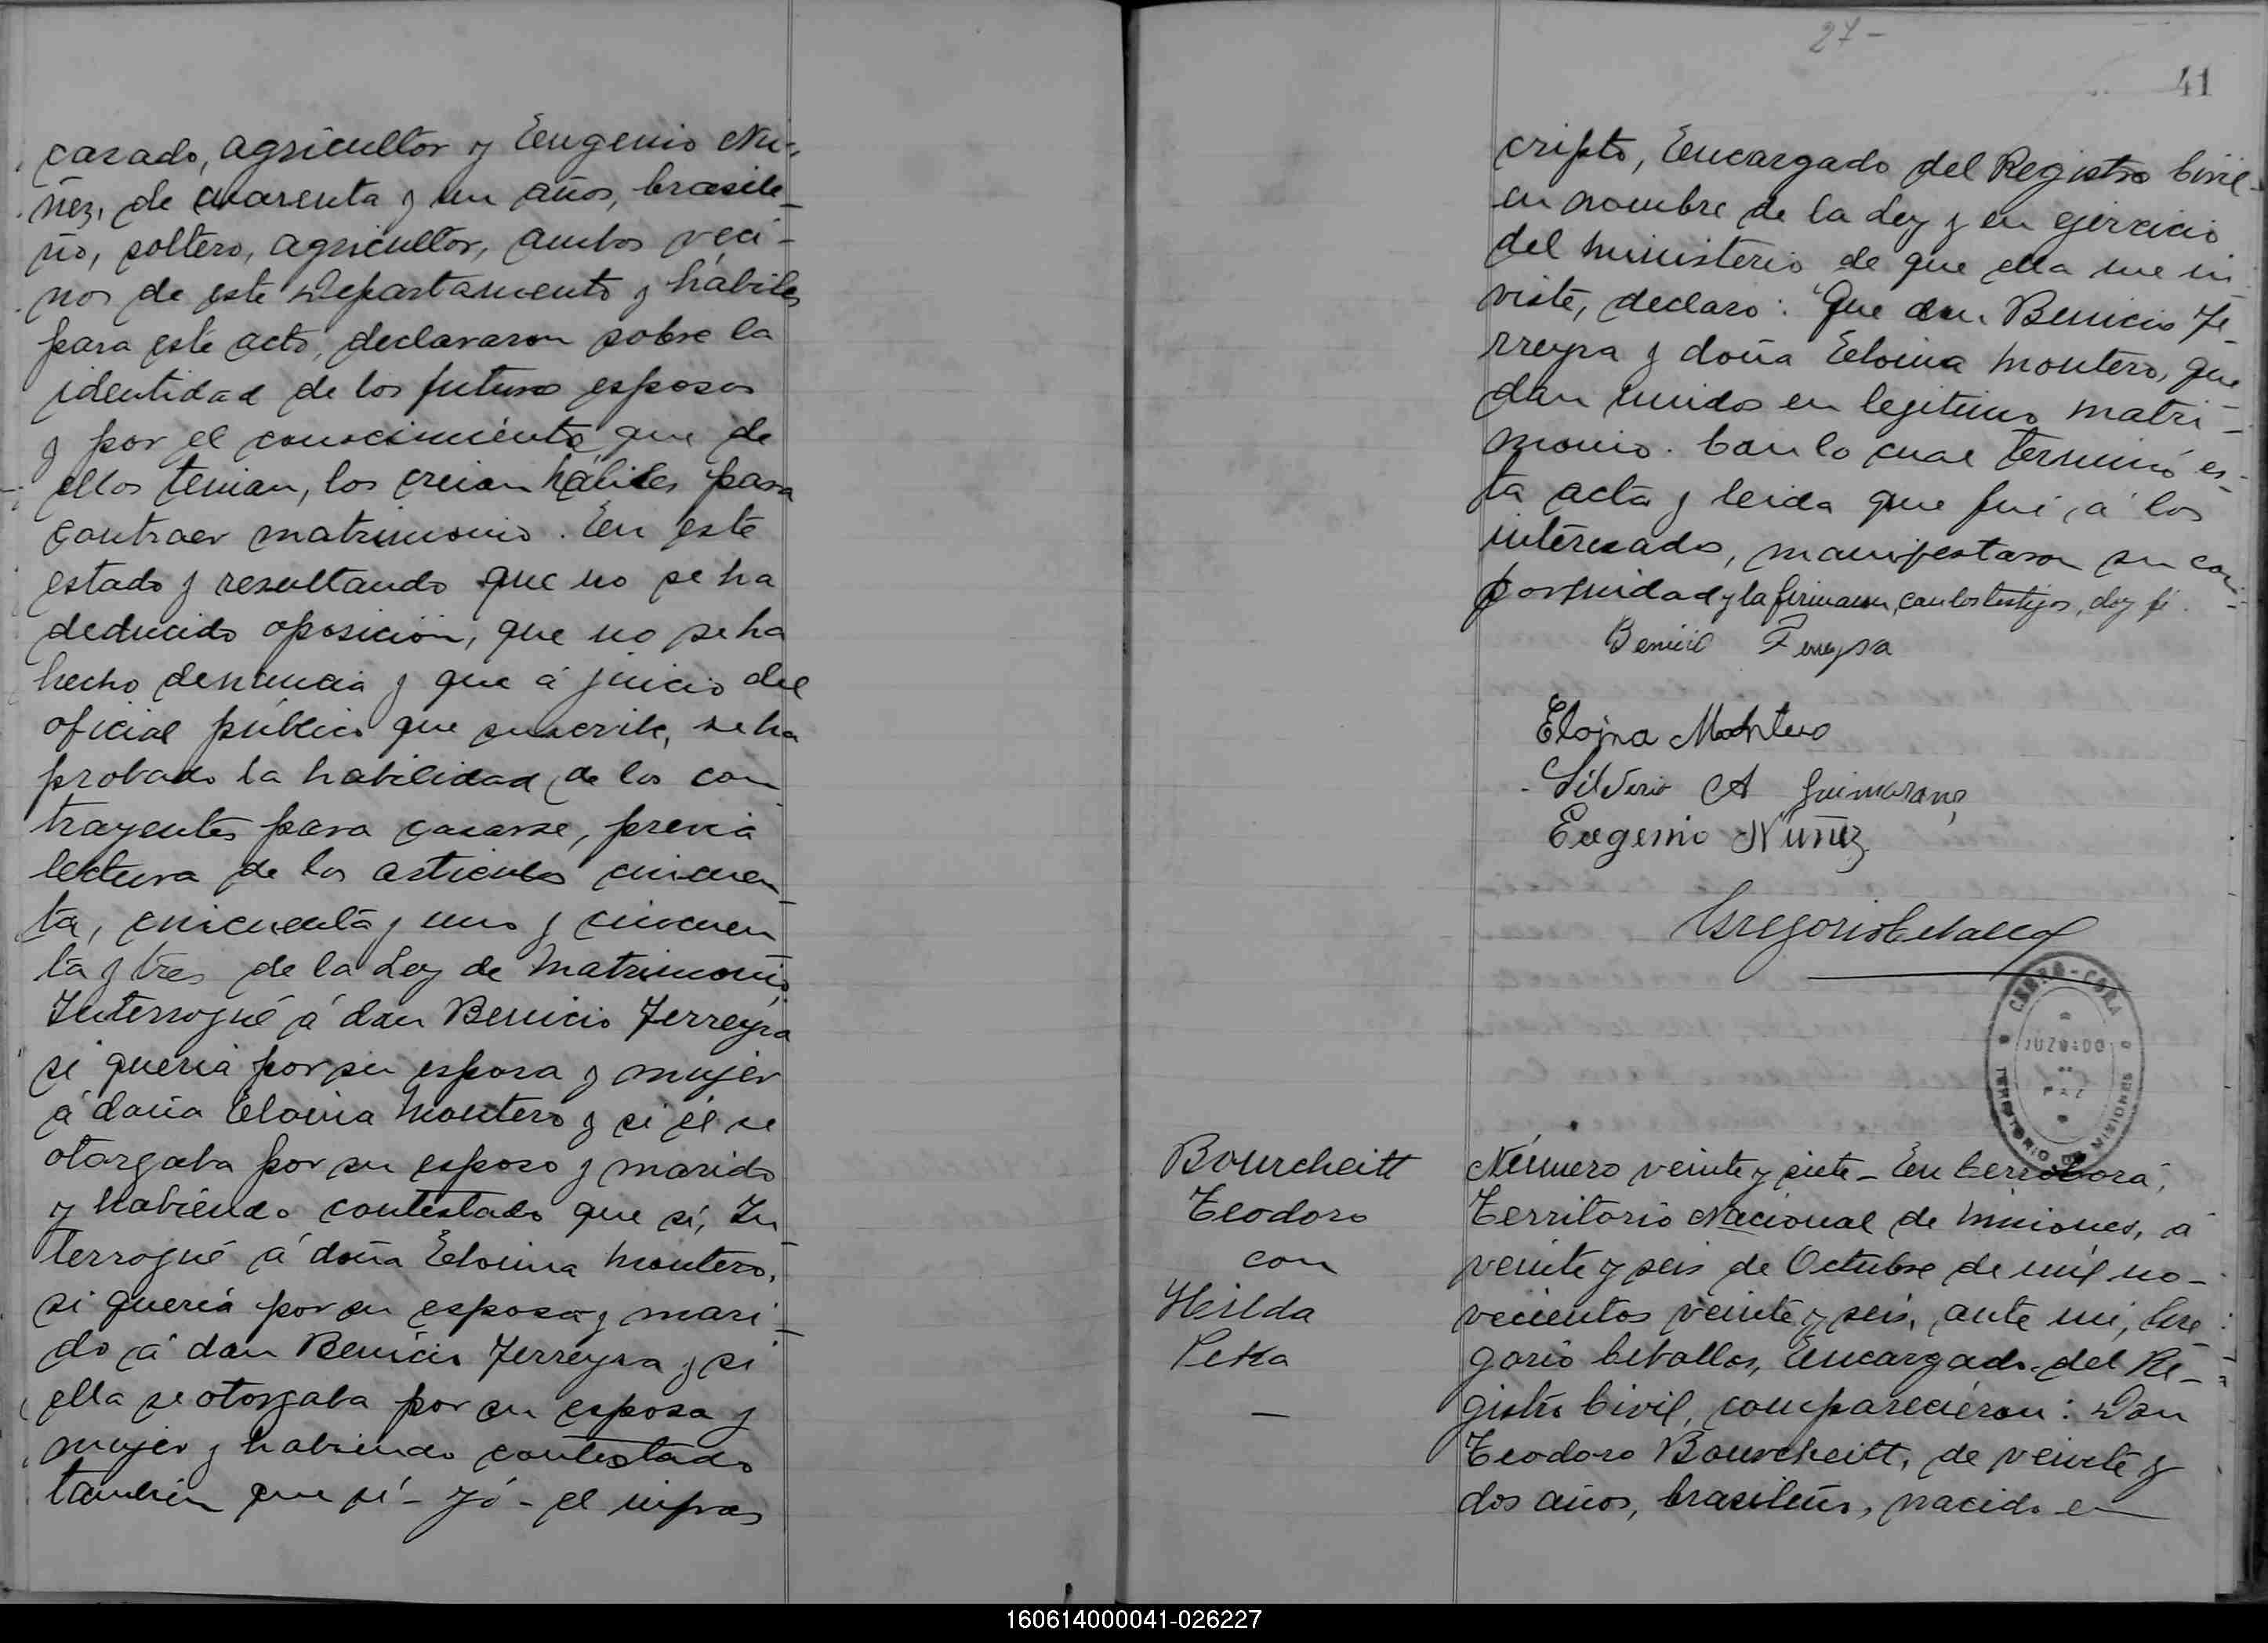 casado, agricultor y Eugenio Nu-
ñez, de cuarenta y un años, brasile-
ño, soltero, agricultor, ambos veci-
nos de este Departamento y hábiles
para este acto, declararon sobre la
identidad de los futuros esposos
y por el conocimiento que de
ellos tenian, los creian hábiles para
contraer matrimonio. En este
estado y resultando que no se ha
deducido oposicion, que no se ha
hecho denuncia y que á juicio del
oficial público que suscribe, se ha
probado la habilidad de los con
trayentes para casarse, previa
lectura de los articulos cincuen
ta, cincuenta y uno y cincuen
ta y tres de la Ley de Matrimonio,
Interrogué á don Benicio Ferreyra
si queria por su esposa y mujer
á doña Eloina Montero y si él se
otorgaba por su esposo y marido
y habiendo contestado que sí, In
terrogué á doña Eloina Montero,
si queria por su esposo y mari-
do á don Benicio Ferreyra y si
ella se otorgaba por su esposa y
mujer y habiendo contestado
tambien que sí - yó - el infras
27-
41
cripto, Encargado del Registro Civil
en nombre de la Ley y en ejercicio
del ministerio de que ella me in
viste, declaro: Que don Benicio Fe-
rreyra y doña Eloina Montero, que
dan unidos en legitimo matri-
monio. Con lo cual terminó es-
ta acta y leida que fué, á los
interesados, manifestaron su con-
formidad y la firmaron, con los testigos, doy fé.
Benicio Ferreyra
Eloina Montero
Silverio A Guimarans
Eugenio Nuñez
Gregorio Ceballos
CERRO-CORA
JUZGADO
DE
PAZ
TERRITORIO DE MISIONES
Bourcheitt
Teodoro
con
Hilda
Leka
—
Número veinte y siete - En Cerro Corá,
Territorio Nacional de Misiones, á
veinte y seis de Octubre de mil no-
vecientos veinte y seis, ante mi, Gre-
gorio Ceballos, Encargado del Re-
gistro Civil, comparecieron: Don
Teodoro Bourcheitt, de veinte y
dos años, brasileño, nacido en
160614000041-026227